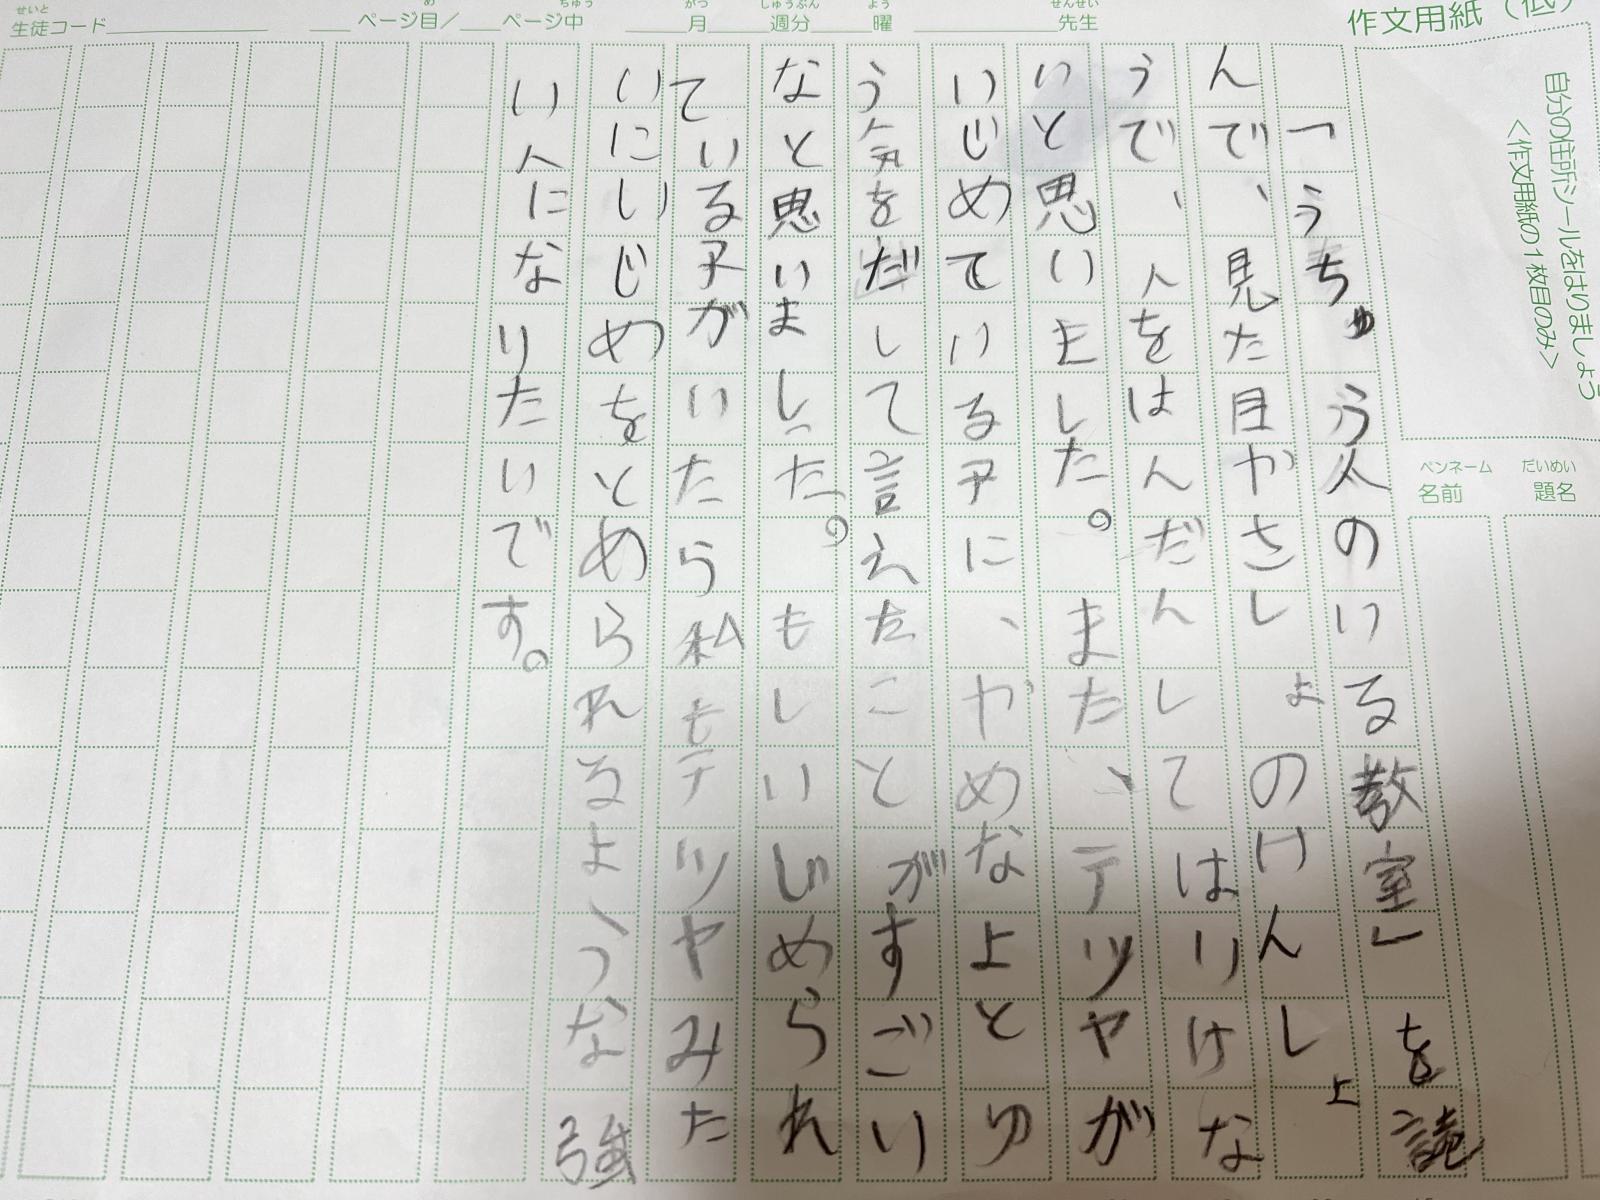 作文用紙(低)
自分の住所シールをはりましょう
<作文用紙の1枚目のみ>
生徒コード ページ目/ ページ中 月 週分 曜 先生
せいと め ちゅう がつ しゅうぶん よう せんせい
だいめい
題名
ペンネーム
名前
「うちゅう人のいる教室」を読
んで、見た目やさしょのけんしょ
うで、人をはんだんしてはりけな
いと思いました。また、テツヤが
いじめている子に、やめなよとゆ
う気をだして言えたことがすごい
なと思いましった。もしいじめられ
ている子がいたら私もテツヤみた
いにいじめをとめられるような強
い人になりたいです。